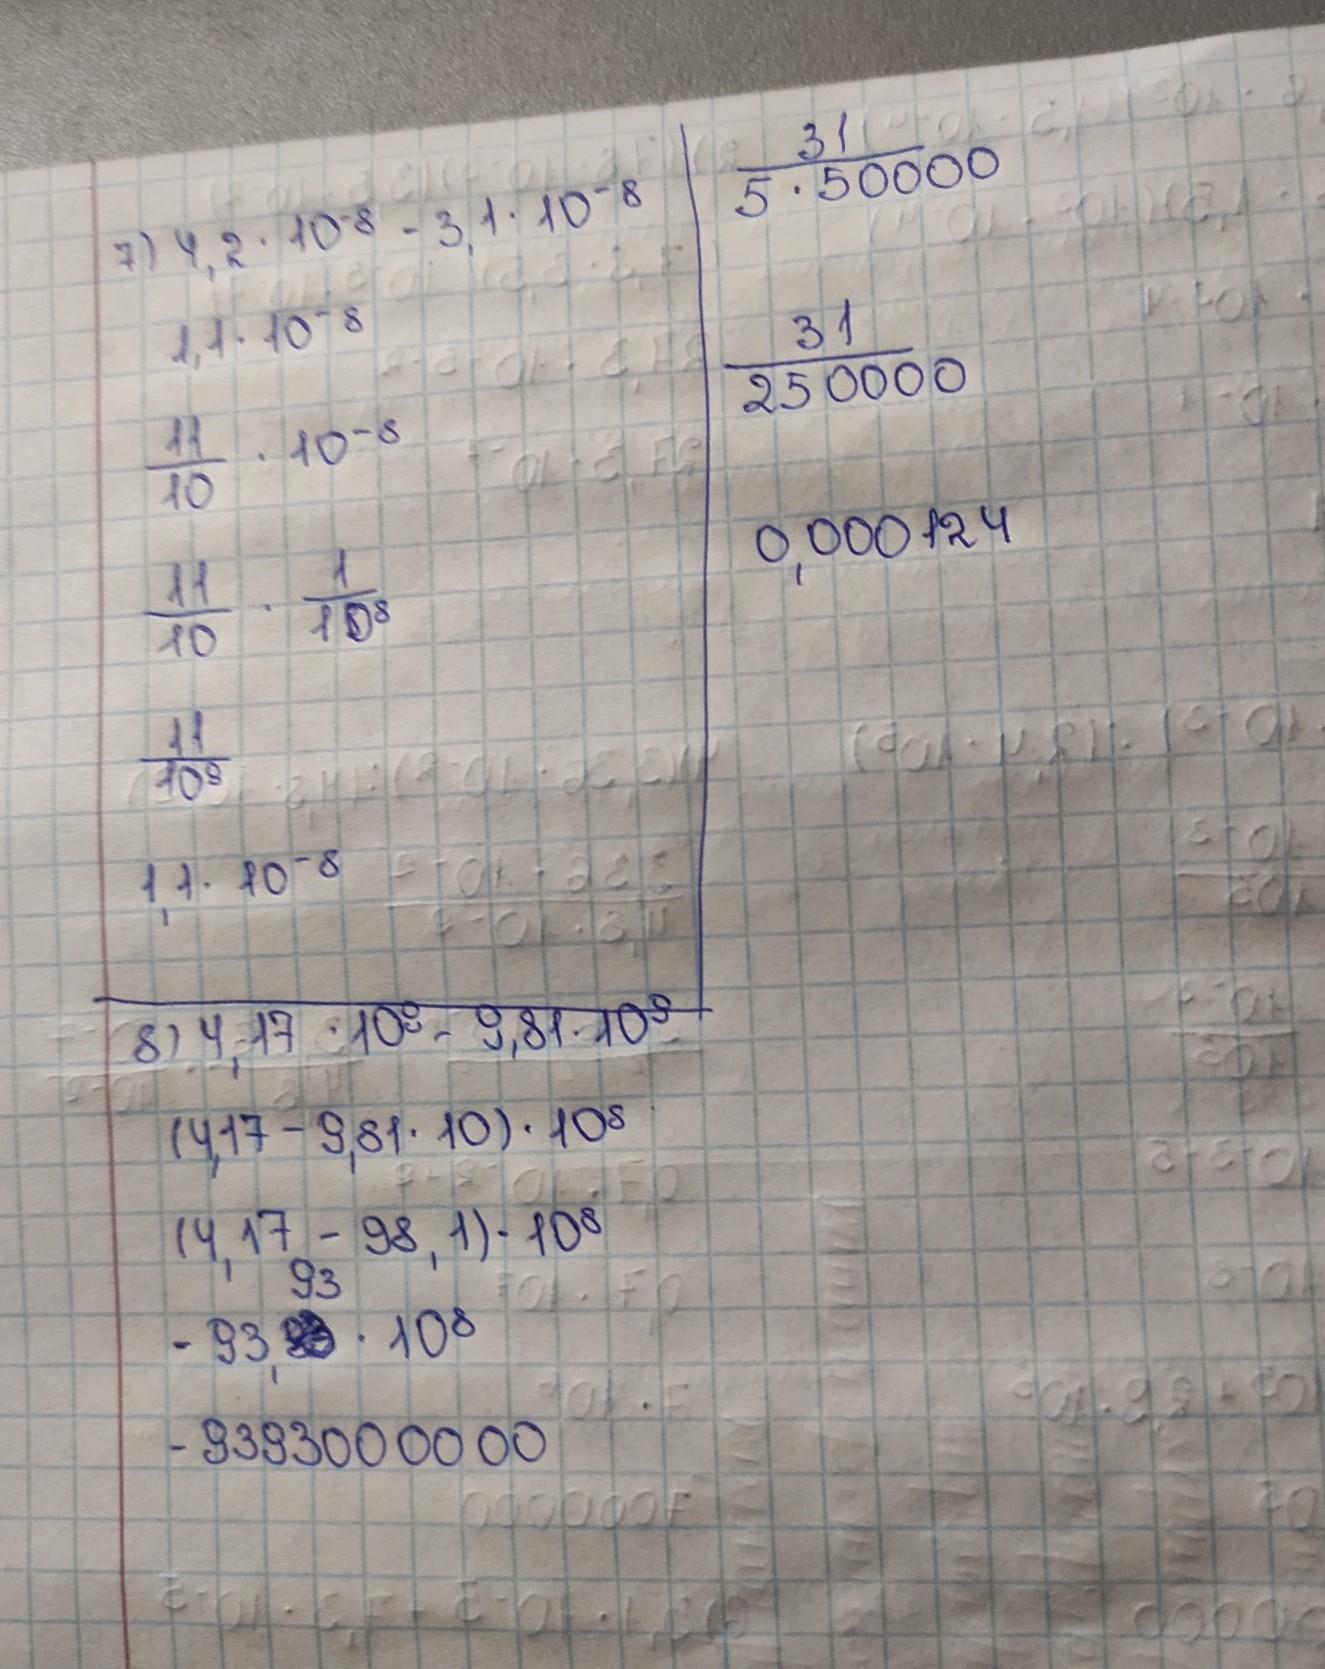 7) 4,2 · 10⁻⁸ - 3,1 · 10⁻⁸
1,1 · 10⁻⁸
11/10 · 10⁻⁸
11/10 · 1/10⁸
11/10⁹
1,1 · 10⁻⁸
31/5 · 50000
31/250000
0,000124
8) 4,17 · 10⁸ - 9,81 · 10⁹
(4,17 - 9,81 · 10) · 10⁸
(4,17 - 98,1) · 10⁸
93
- 93, · 10⁸
- 9393000000